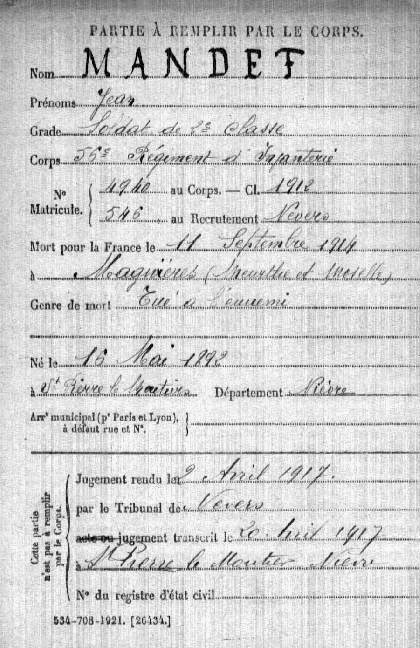 PARTIE À REMPLIR PAR LE CORPS.
Nom MANDET
Prénoms Jean
Grade Soldat de 2e classe
Corps 56e Régiment d'Infanterie
No Matricule. 4940 au Corps. — Cl. 1912
546 au Recrutement Nevers
Mort pour la France le 11 Septembre 1914
à (Meurthe et Moselle)
Genre de mort Tué à l'ennemi
Né le 16 Mai 1892
à St Pierre le Moutier Département Nièvre
Arrt municipal (pr Paris et Lyon),
à défaut rue et No.
Cette partie n'est pas à remplir par le Corps.
Jugement rendu le 2 Avril 1917.
par le Tribunal de Nevers
acte ou jugement transcrit le 20 Avril 1917
à St Pierre le Moutier Nièvre
No du registre d'état civil
534-708-1921. [26434.]